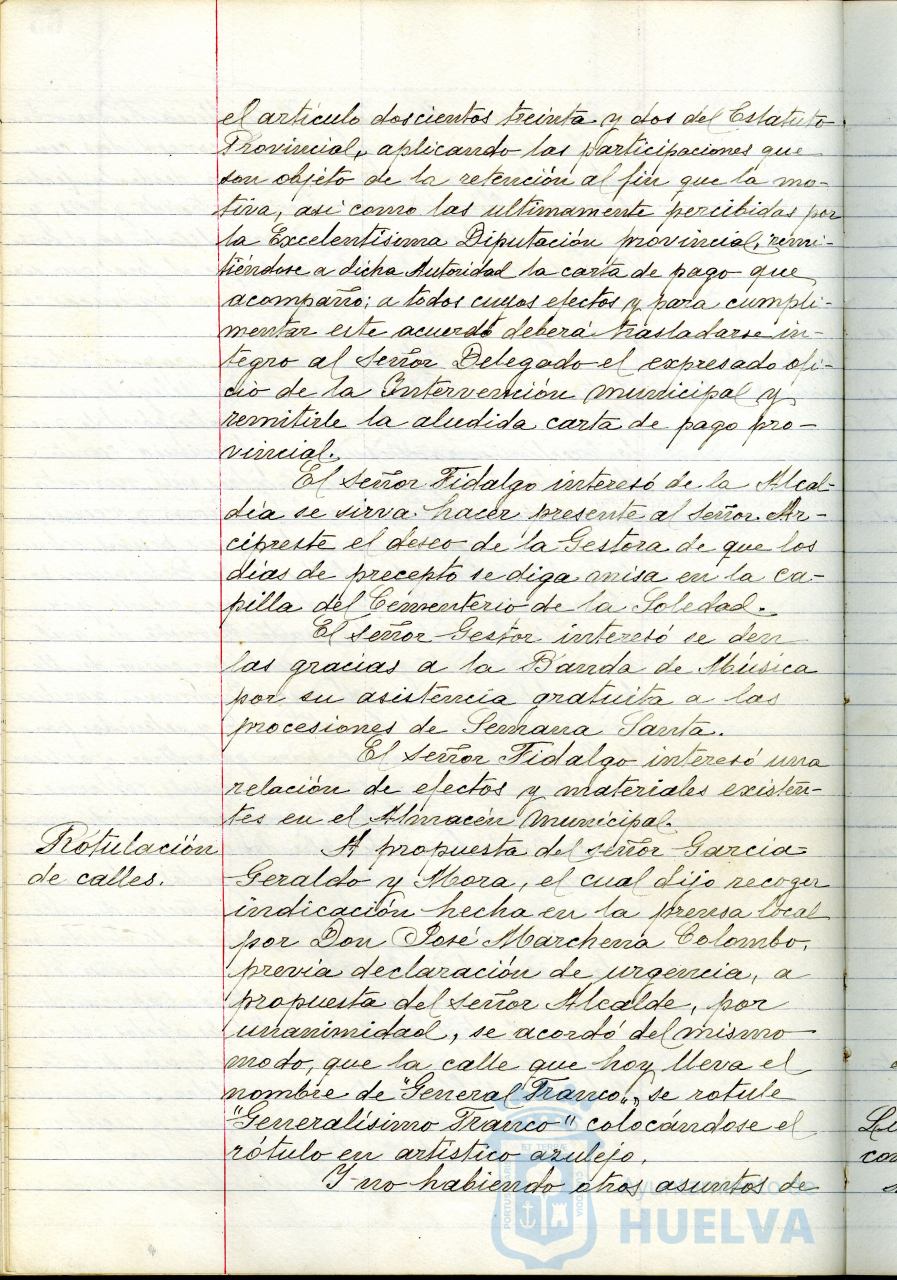 el artículo doscientos treinta y dos del Estatuto
Provincial, aplicando las participaciones que
son objeto de la retención al fin que la mo-
tiva, así como las ultimamente percibidas por
la Excelentisima Diputación provincial, remi-
tiéndose a dicha Autoridad la carta de pago que
acompaño; a todos cuyos efectos y para cumpli-
mentar este acuerdo deberá trasladarse in-
tegro al señor Delegado el expresado ofi-
cio de la Intervención municipal y
remitirle la aludida carta de pago pro-
vincial.
El señor Fidalgo interesó de la Alcal-
día se sirva hacer presente al señor Ar-
cipreste el deseo de la Gestora de que los
días de precepto se diga misa en la ca-
pilla del Cementerio de la Soledad.
El señor Gestor interesó se den
las gracias a la Banda de Música
por su asistencia gratuita a las
procesiones de Semana Santa.
El señor Fidalgo interesó una
relación de efectos y materiales existen-
tes en el Almacén municipal.
Rotulación
de calles.
A propuesta del señor Garcia
Geraldo y Mora, el cual dijo recoger
indicación hecha en la prensa local
por Don José Marchena Colombo,
previa declaración de urgencia, a
propuesta del señor Alcalde, por
unanimidad, se acordó del mismo
modo, que la calle que hoy lleva el
nombre de "General Franco", se rotule
"Generalísimo Franco" colocándose el
rótulo en artístico azulejo.
Y no habiendo otros asuntos de
HUELVA